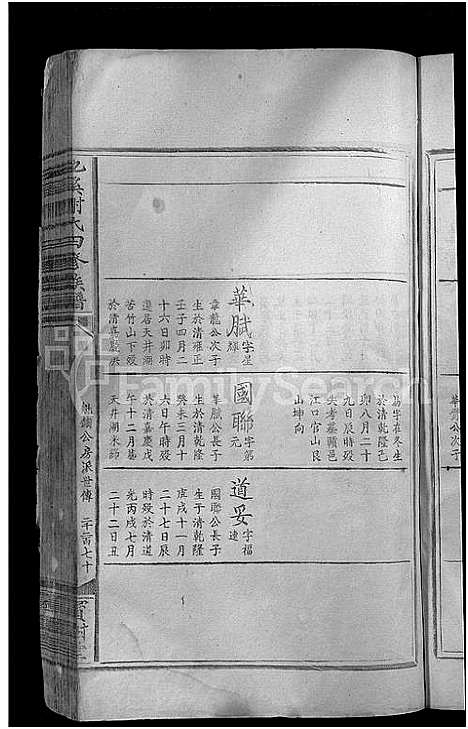 易字在冬生
於清乾隆己
卯八月二十
九日辰時歿
失考墓贛邑
江口官山艮
山坤向
華賦字星
輝
章龍公次子
生於清雍正
壬子四月二
十六日卯時
遷居天井湖
苦竹山下歿
於清嘉慶
國聯字第
元
華賦公長子
生於清乾隆
癸未三月十
六日午時歿
於清嘉慶戊
午十二月墓
天井湖
道妥字福
達
國聯公長子
生于清乾隆
庚戌十一月
二十七日辰
時歿於清道
光丙戌七月
二十二日丑
謝氏四修族譜
公房派世傳
華賓公次子
FamilySearch